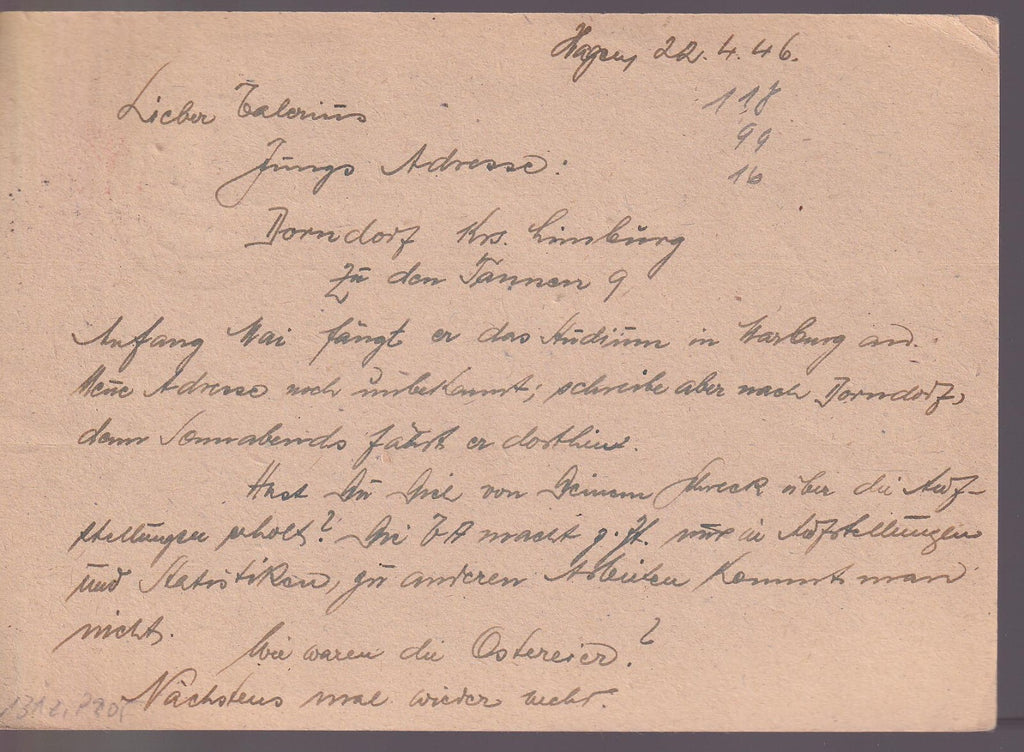 Hagen, 22.4.46.
118
Lieber Valerius
99
Jungs Adresse:
16
Dorndorf Krs. Limburg
Zu den Tannen 9
Anfang Mai fängt er das Studium in Marburg an.
Neue Adresse noch unbekannt; schreibe aber nach Dorndorf,
denn Sonnabends fährt er dorthin.
Hast Du Dich von Deinem Schreck über die Auf-
stellungen erholt? Die macht z. Zt. nur in Aufstellungen
und Statistiken, zu anderen Arbeiten kommt man
nicht.
Wie waren die Ostereier?
Nächstens mal wieder mehr.